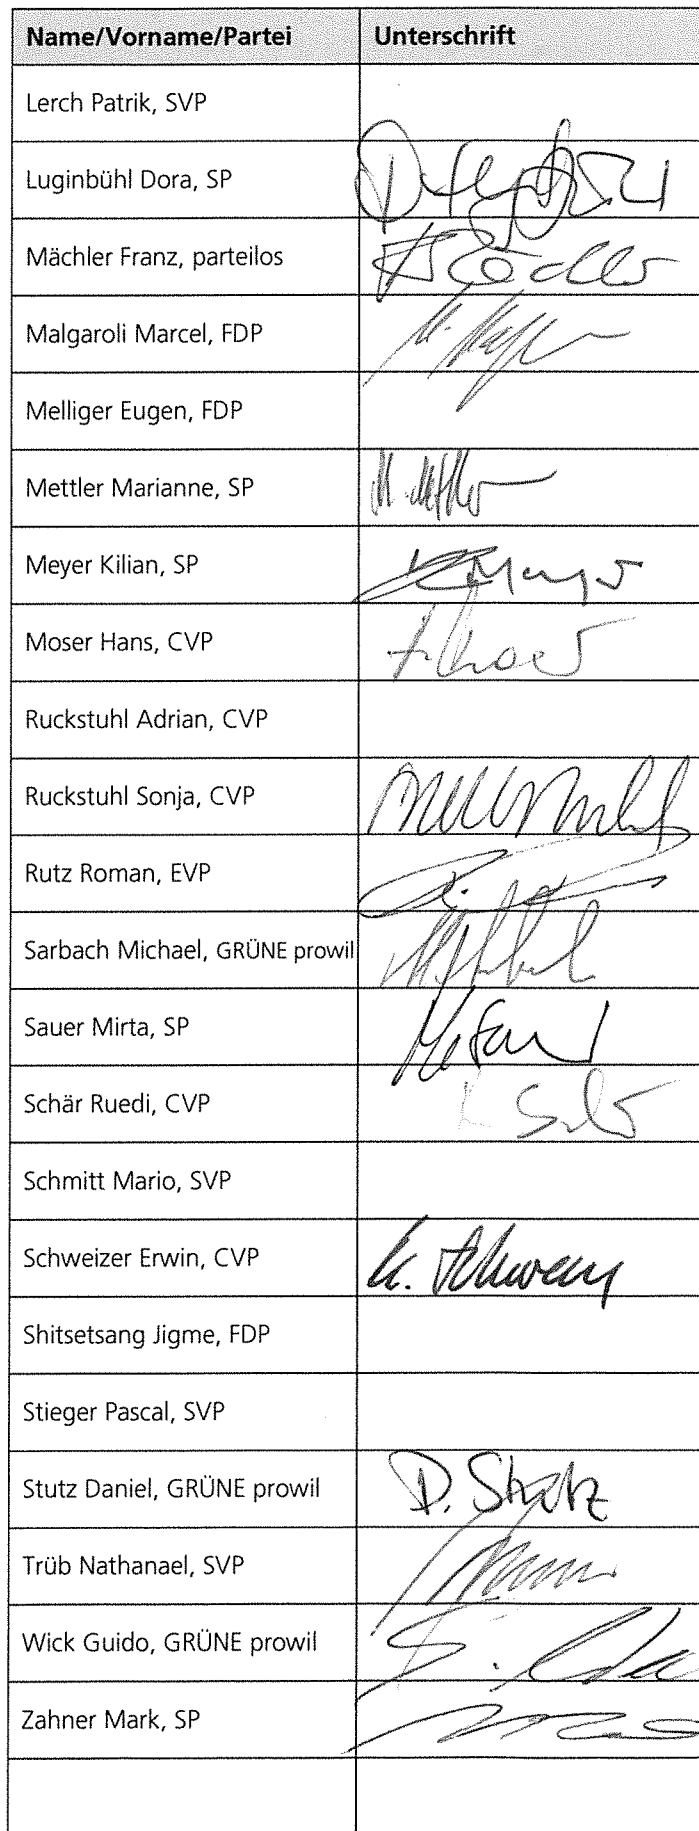 Name/Vorname/Partei Unterschrift
Lerch Patrik, SVP
Luginbühl Dora, SP
Mächler Franz, parteilos
Malgaroli Marcel, FDP
Melliger Eugen, FDP
Mettler Marianne, SP M. Mettler
Meyer Kilian, SP K Meyer
Moser Hans, CVP
Ruckstuhl Adrian, CVP
Ruckstuhl Sonja, CVP
Rutz Roman, EVP
Sarbach Michael, GRÜNE prowil
Sauer Mirta, SP
Schär Ruedi, CVP
Schmitt Mario, SVP
Schweizer Erwin, CVP
Shitsetsang Jigme, FDP
Stieger Pascal, SVP
Stutz Daniel, GRÜNE prowil D. Stutz
Trüb Nathanael, SVP
Wick Guido, GRÜNE prowil
Zahner Mark, SP